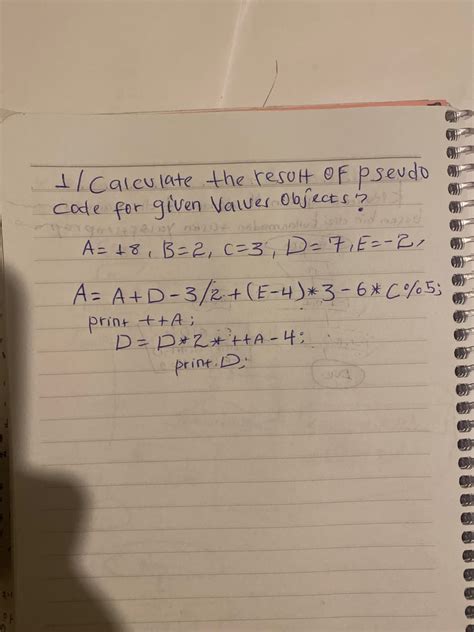 1/ Calculate the result OF pseudo
code for given Values Objects?
A= +8, B=2, C=3, D=7, E=-2,
A= A+D-3/2+(E-4)*3-6*C%5;
print ++A;
D= D*2*++A-4;
print D;